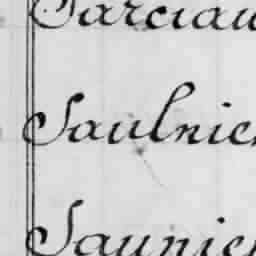 Sarciau
Saulnier
Saunier